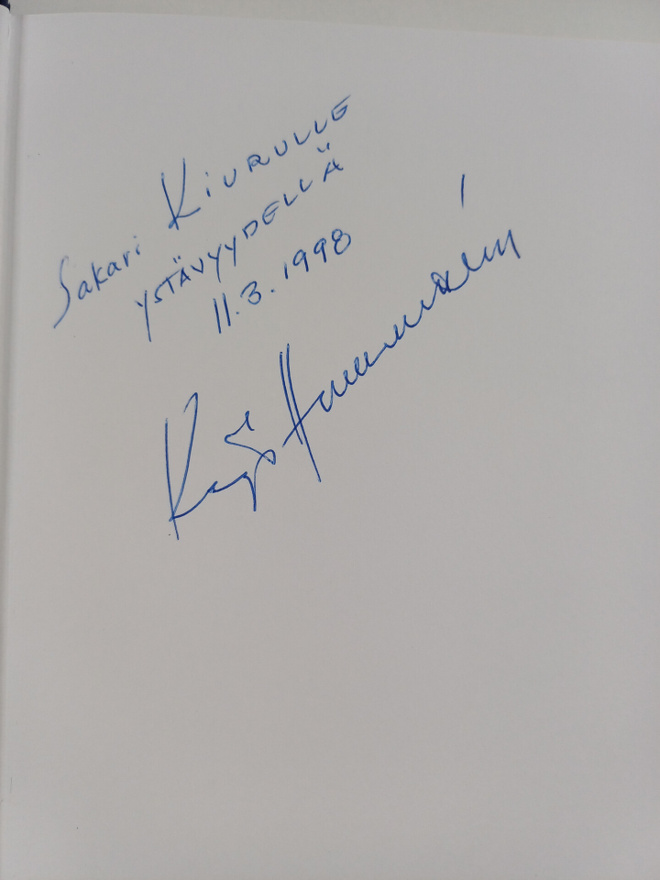 Sakari KIURULLE
YSTÄVYYDELLÄ
11.3.1998